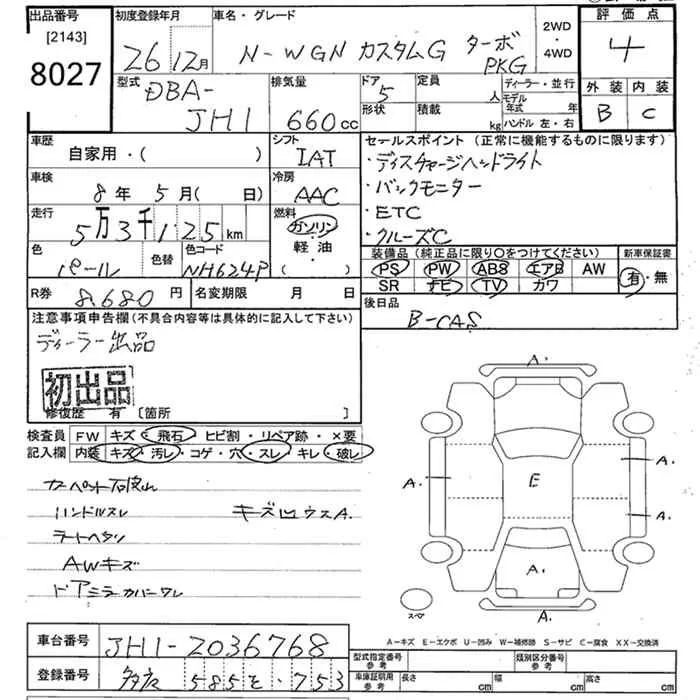 出品番号 [2143] 8027
初度登録年月 26 12月
車名・グレード N-WGN カスタムG ターボ PKG
2WD・4WD
評価点 4
外装 内装
B C
型式 DBA-JH1
排気量 660cc
ドア 5 形状
定員 人 積載 kg
ディーラー・並行
モデル年式 年
ハンドル 左・右
車歴 自家用・( )
シフト IAT
車検 8年 5月( 日)
冷房 AAC
走行 5万3千125km
燃料 ガソリン 軽油・( )
色 パール 色替
色コード NH624P
R券 8.680円
名変期限 月 日
セールスポイント(正常に機能するものに限ります)
・ディスチャージヘッドライト
・バックモニター
・ETC
・クルーズC
装備品(純正品に限り○をつけてください)
新車保証書
PS PW ABS エアB AW
SR ナビ TV カワ
有・無
後日品 B-CAS
注意事項申告欄(不具合内容等は具体的に記入して下さい)
ディーラー出品
初出品
修復歴 有 〔箇所 〕
検査員記入欄
FW キズ・飛石・ヒビ割・リペア跡・×要
内装 キズ・汚レ・コゲ・穴・スレ・キレ・破レ
ハンドルスレ
AWキズ
ドアミラーカバーワレ
A.
A. E A.
A.
A.
A.
スペア
A-キズ E-エクボ U-凹み W-補修跡 S-サビ C-腐食 XX-交換済
車台番号 JH1-2036768
登録番号 多摩 585 そ・753
型式指定番号 参考
類別区分番号 参考
車庫証明用 参考 長さ cm 幅 cm 高さ cm